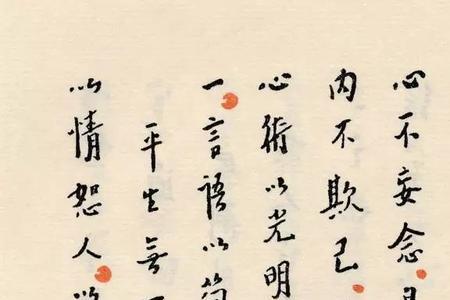 心不妄念
内不欺己
心術以光明
一言語以
平生無
以情恕人